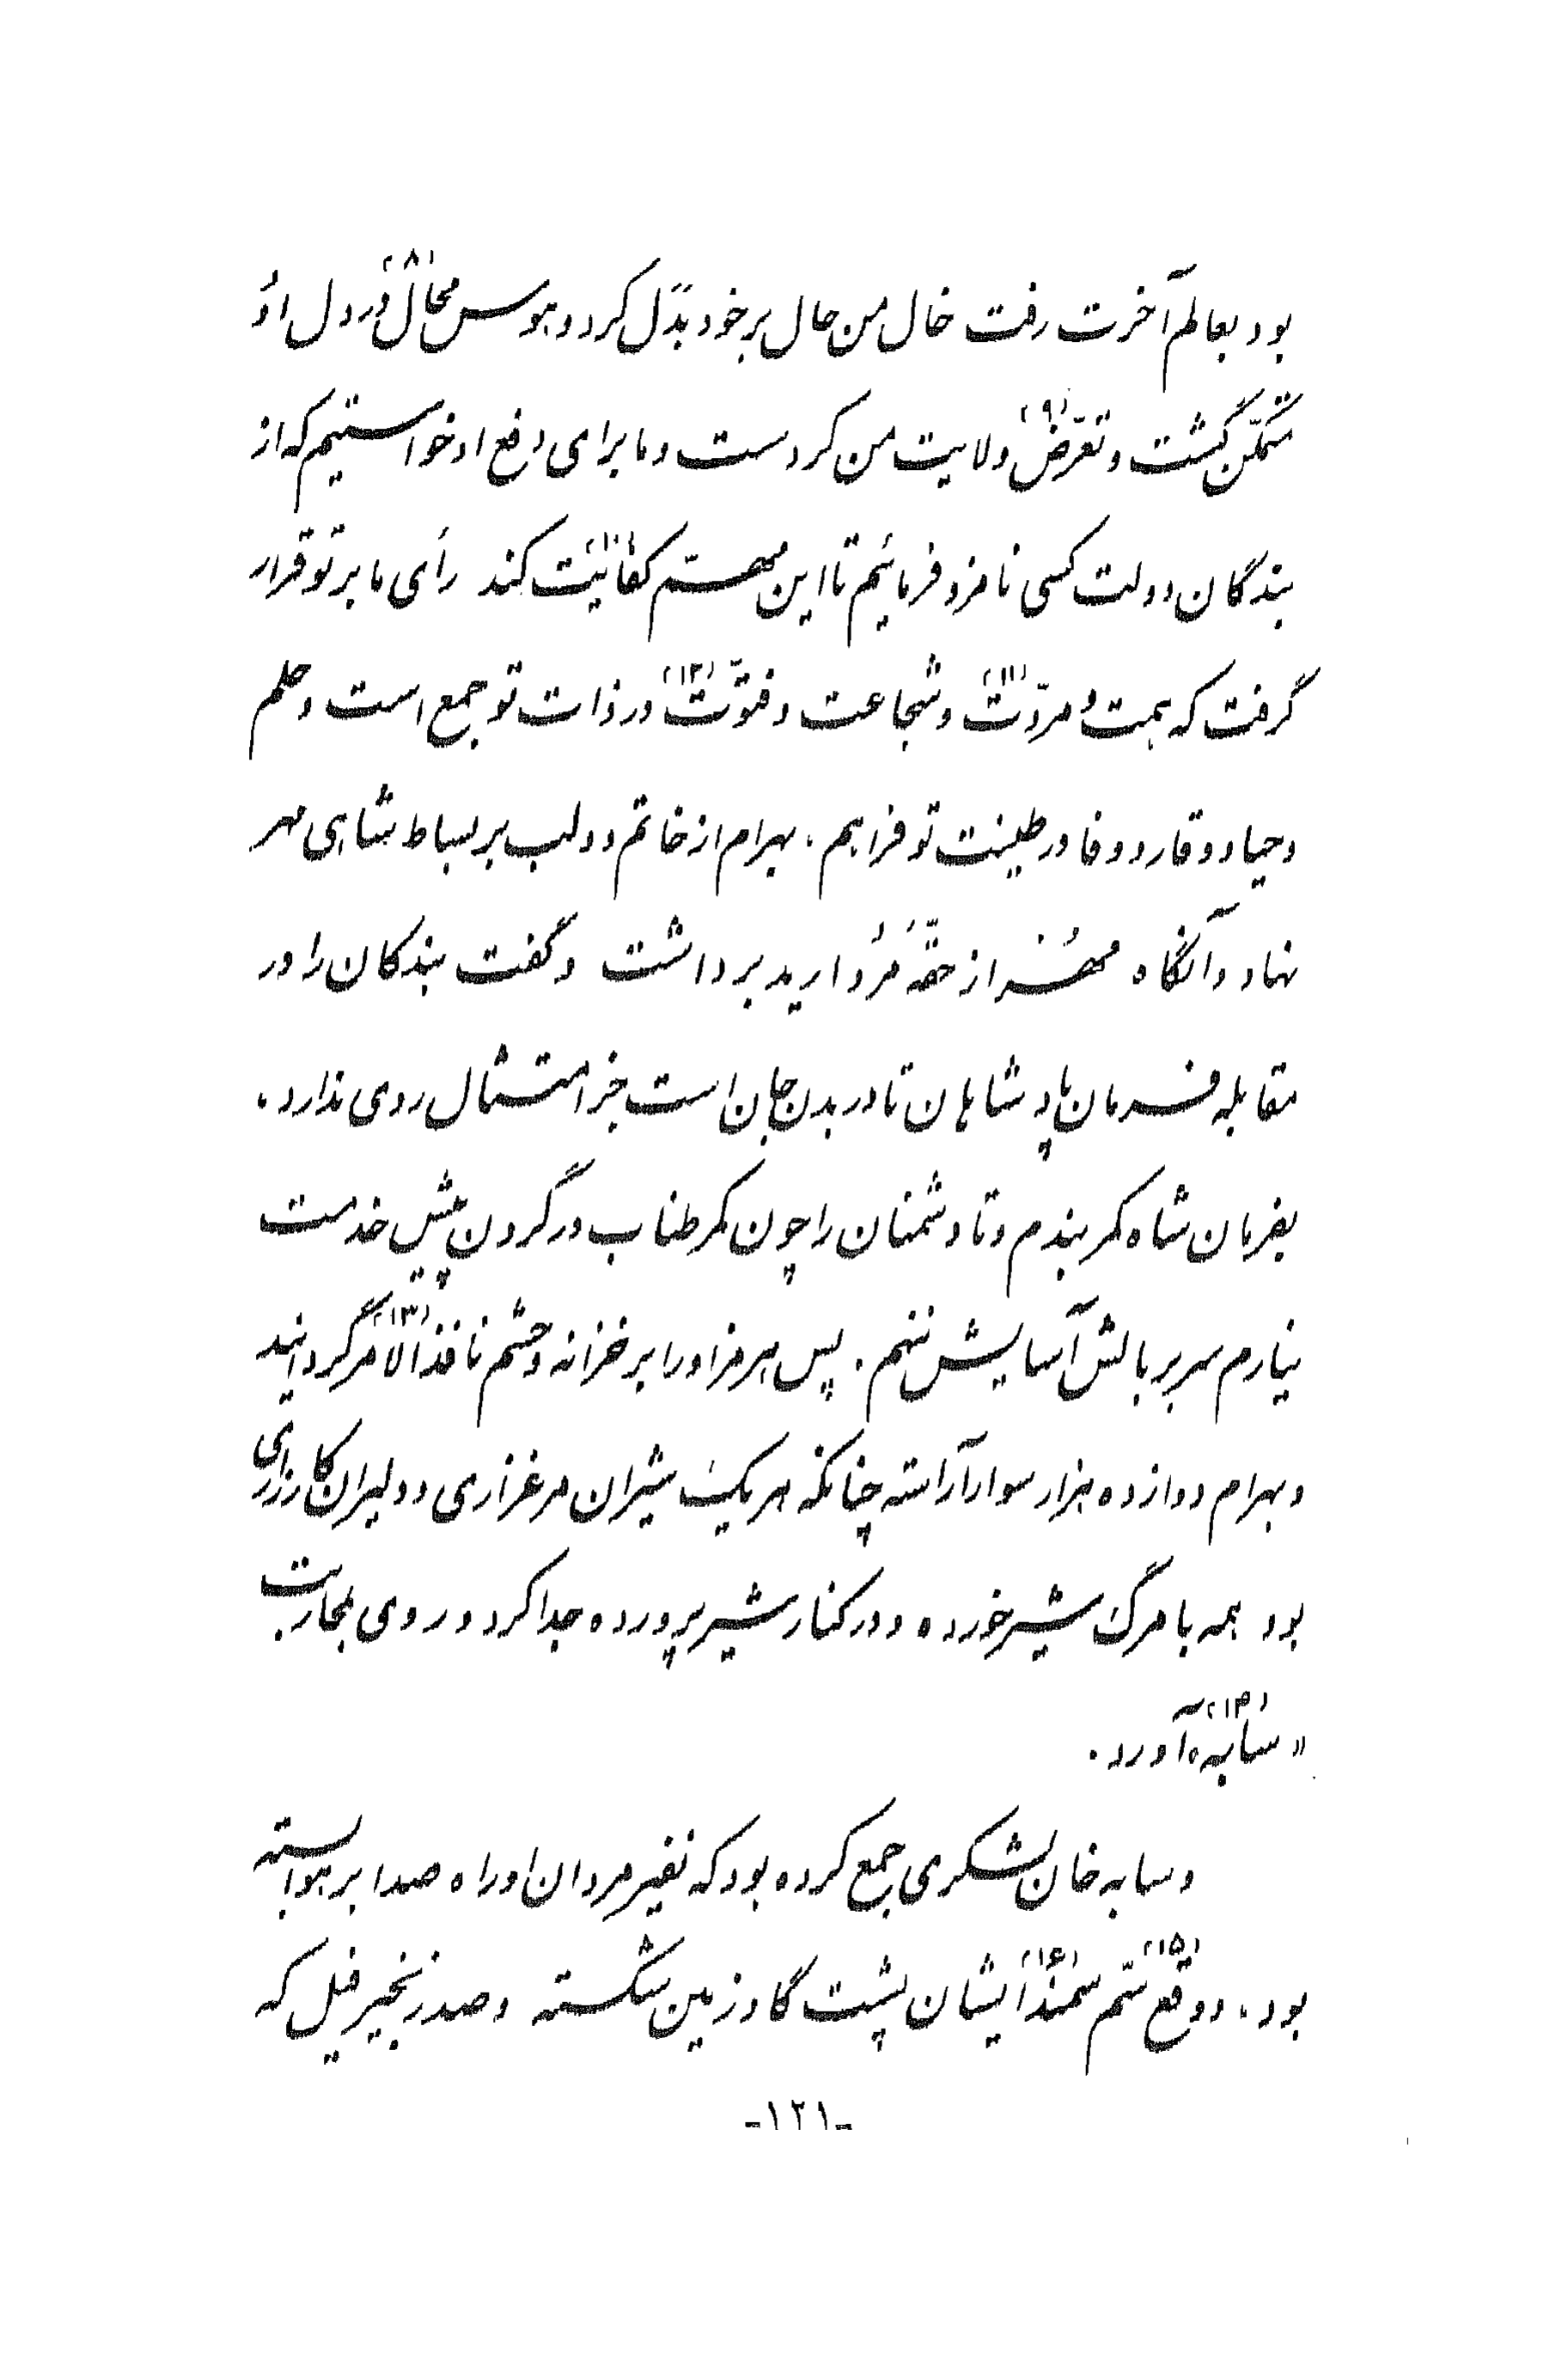 بود بعالم آخرت رفت خال من حال بر خود بدّل کرد و هوس محال (۸) در دل او
متمکّن گشت و تعرّض (۹) ولایت من کردست و ما برای دفع او خواستیم که از
بندگان دولت کسی نامزد فرمائیم تا این مهمّ کفایت (۱۰) کند رأی ما بر تو قرار
گرفت که همت و مروّت (۱۱) و شجاعت و فتوّت (۱۲) در ذات تو جمع است و حلم
و حیا و وقار و وفا در طینت تو فراهم، بهرام از خاتم دو لب بر بساط شاهی مهر
نهاد و آنگاه مُهر از حقّهٔ مُروارید برداشت و گفت بندگان را در
مقابله فرمان پادشاهان تا در بدن جان است جز امتثال روی ندارد،
بفرمان شاه کمر بندم و تا دشمنان را چون کمر طناب در گردن پیش خدمت
نیارم سر بر بالش آسایش ننهم. پس هرمز او را بر خزانه و حشم نافذ الامر (۱۳) گردانید
و بهرام دوازده هزار سوار آراسته چنانکه هر یک شیران مرغزاری و دلیران کارزاری
بود همه با مرگ شیر خورده و در کنار شیر پرورده جدا کرد و روی بمحاربت
« سابه (۱۴) آورد.
و سابه خان لشکری جمع کرده بود که نفیر مردان او راه صدا بر هوا بسته
بود، و وقع (۱۵) سّم سمند (۱۶) ایشان پشت گاو زمین شکسته و صد زنجیر فیل که
-۱۲۱-